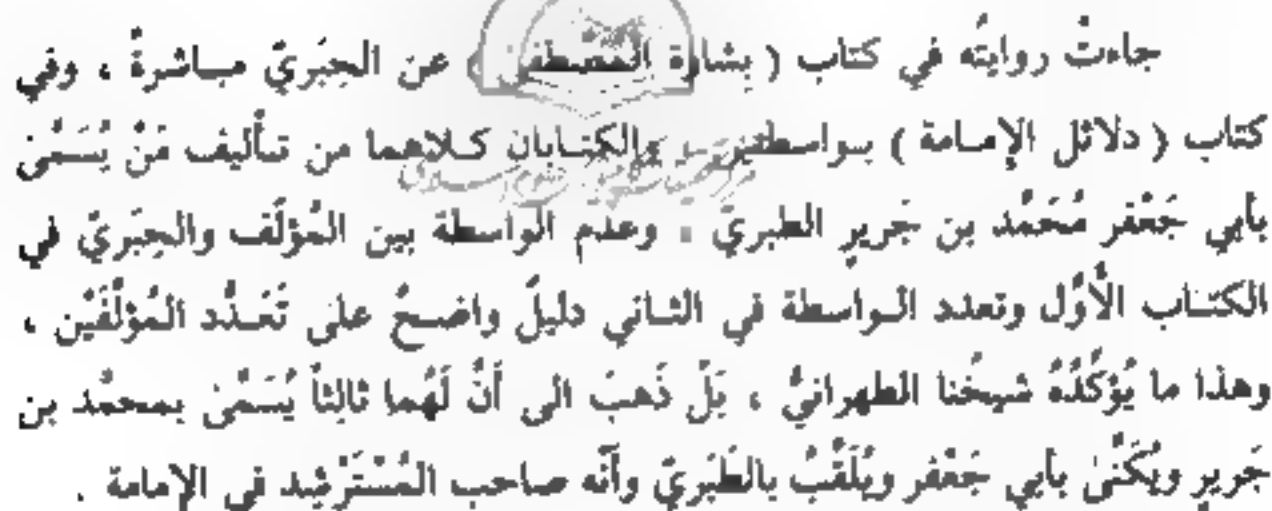 جاءتْ روايتُه في كتاب ( بِشارة المُصطفىٰ ) عن الحِبَريّ مباشرةً ، وفي
كتاب ( دلائل الإمامة ) بواسطتين والكتابان كلاهما من تأليف مَنْ يُسَمّىٰ
بأبي جَعْفر مُحَمَّد بن جَريرٍ الطبريّ . وعدم الواسطة بين المُؤلّف والحِبَريّ في
الكتاب الأوّل وتعدد الواسطة في الثاني دليلٌ واضحٌ على تَعَدُّد المُؤلِّفَيْن ،
وهذا ما يُؤكِّدُهُ شيخُنا الطهرانيُّ ، بَلْ ذَهبَ الى أنَّ لَهُما ثالِثاً يُسَمّىٰ بمحمَّد بن
جَريرٍ ويُكَنّىٰ بأبي جَعْفر ويُلَقَّبُ بالطَبَريّ وأنّه صاحب المُسْتَرْشِد في الإمامة .